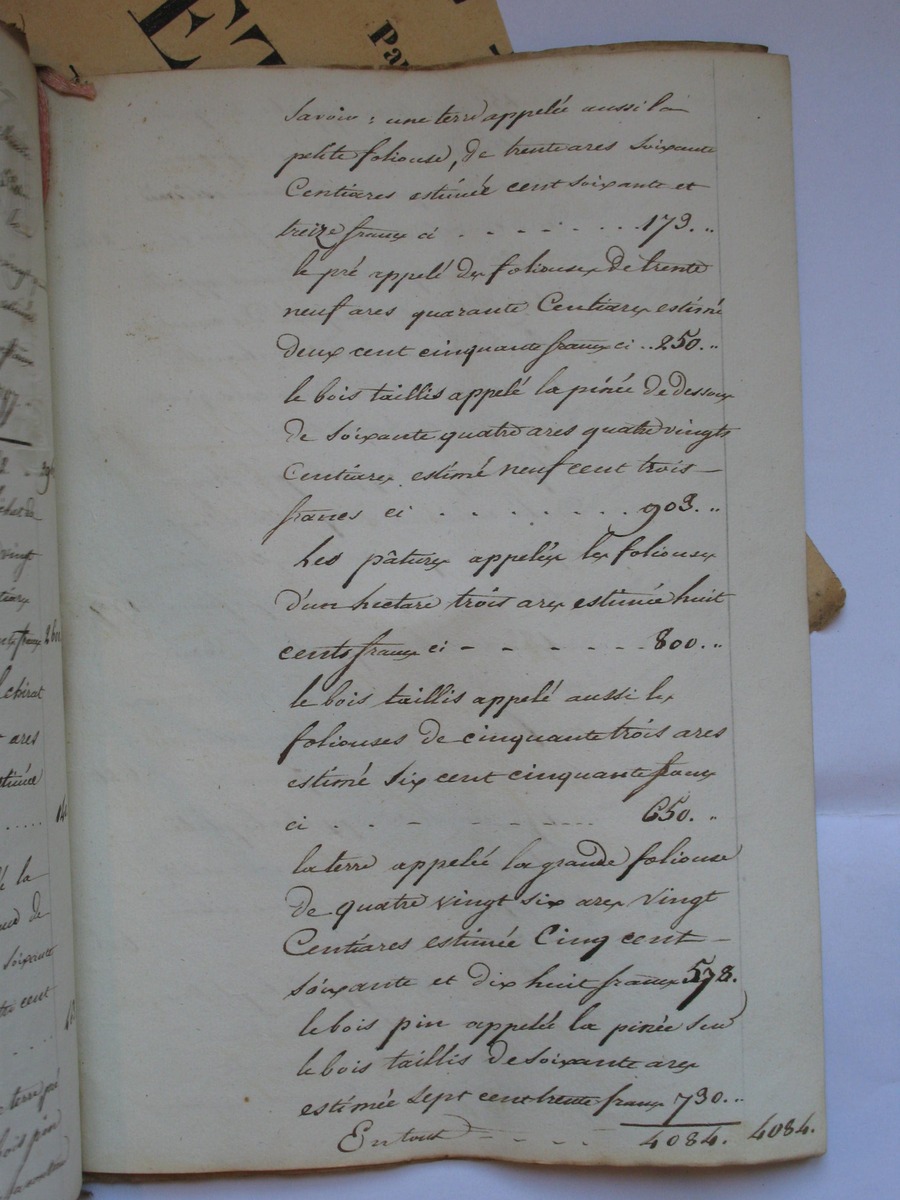 ET
Pa
Savoir : une terre appelée aussi la
petite foliouse, de trente ares Soixante
Centiares estimée cent soixante et
treize francs ci . . . . . . . . 173. "
le pré appelé des foliouses de trente
neuf ares quarante Centiares estimé
deux cent cinquante francs ci .. 250. "
le bois taillis appelé la pinée de dessous
de soixante quatre ares quatre vingts
Centiares estimé neuf cent trois
francs ci . . . . . . . . 903. "
Les pâtures appelées les foliouses
d'un hectare trois ares estimée huit
cents francs ci - - - - - - 800. "
le bois taillis appelé aussi les
foliouses de cinquante trois ares
estimé Six cent cinquante francs
ci . . - - - - - - 650. "
la terre appelée la grande foliouse
de quatre vingt six ares vingt
Centiares estimée Cinq cent
soixante et dix huit francs 578.
le bois pin appelé la pinée sur
le bois taillis de soixante ares
estimée sept cent trente francs 730. "
En tout - - - - 4084. 4084.
ving
francs
chirat
ares
. . . . .
la
de
soixante
cent
. . . .
bois pin